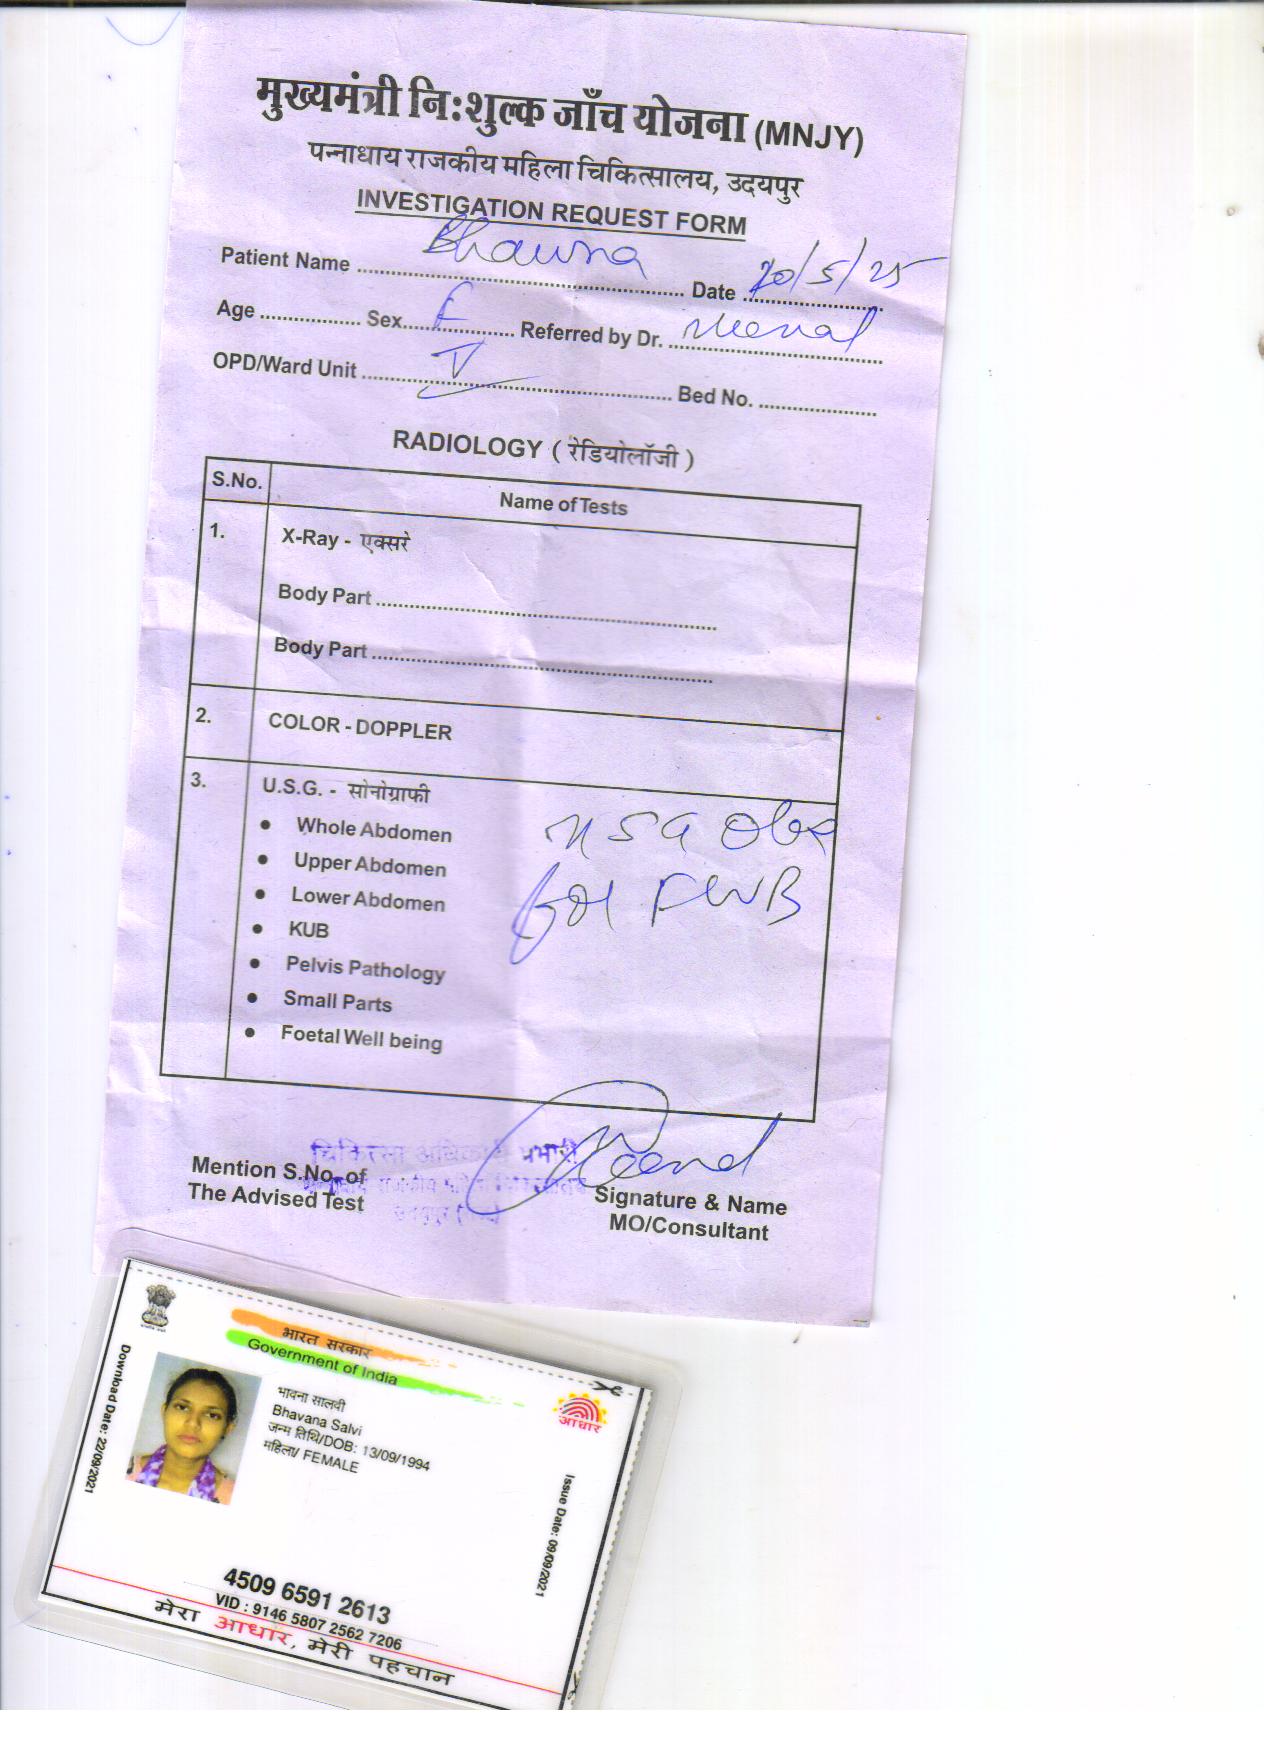 मुख्यमंत्री निःशुल्क जाँच योजना (MNJY)
पन्नाधाय राजकीय महिला चिकित्सालय, उदयपुर
INVESTIGATION REQUEST FORM
Patient Name Bhawna Date 20/5/25
Age Sex F Referred by Dr. Meenal
OPD/Ward Unit V Bed No.
RADIOLOGY ( रेडियोलॉजी )
S.No. Name of Tests
1. X-Ray - एक्सरे
Body Part
Body Part
2. COLOR - DOPPLER
3. U.S.G. - सोनोग्राफी
• Whole Abdomen
• Upper Abdomen
• Lower Abdomen
• KUB
• Pelvis Pathology
• Small Parts
• Foetal Well being
USG Obs
for FWB
चिकित्सा अधिकारी प्रभारी
Mention S.No. of
The Advised Test
Signature & Name
MO/Consultant
भारत सरकार
Government of India
भावना सालवी
Bhavana Salvi
जन्म तिथि/DOB: 13/09/1994
महिला/ FEMALE
आधार
Download Date: 22/09/2021
Issue Date: 09/09/2021
4509 6591 2613
VID : 9146 5807 2562 7206
मेरा आधार, मेरी पहचान